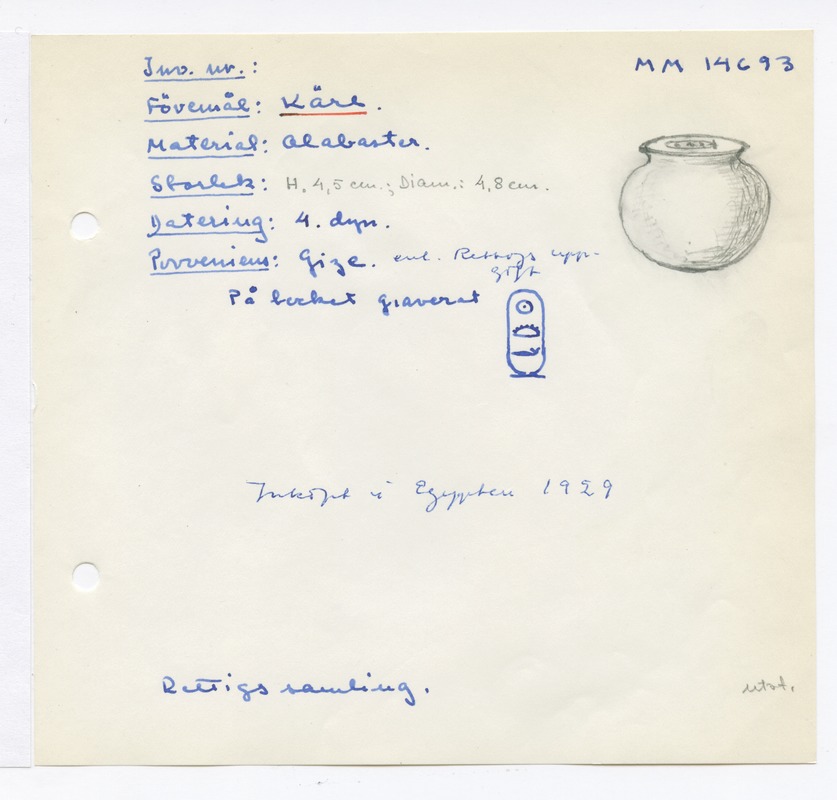 Inv. nr.: MM 14693
Föremål: Kärl.
Material: Alabaster.
Storlek: H. 4,5 cm.; Diam.: 4,8 cm.
Datering: 4. dyn.
Proveniens: Gize. enl. Rettigs upp-
gift
På locket graverat
Inköpt i Egypten 1929
Rettigs samling.
utst.